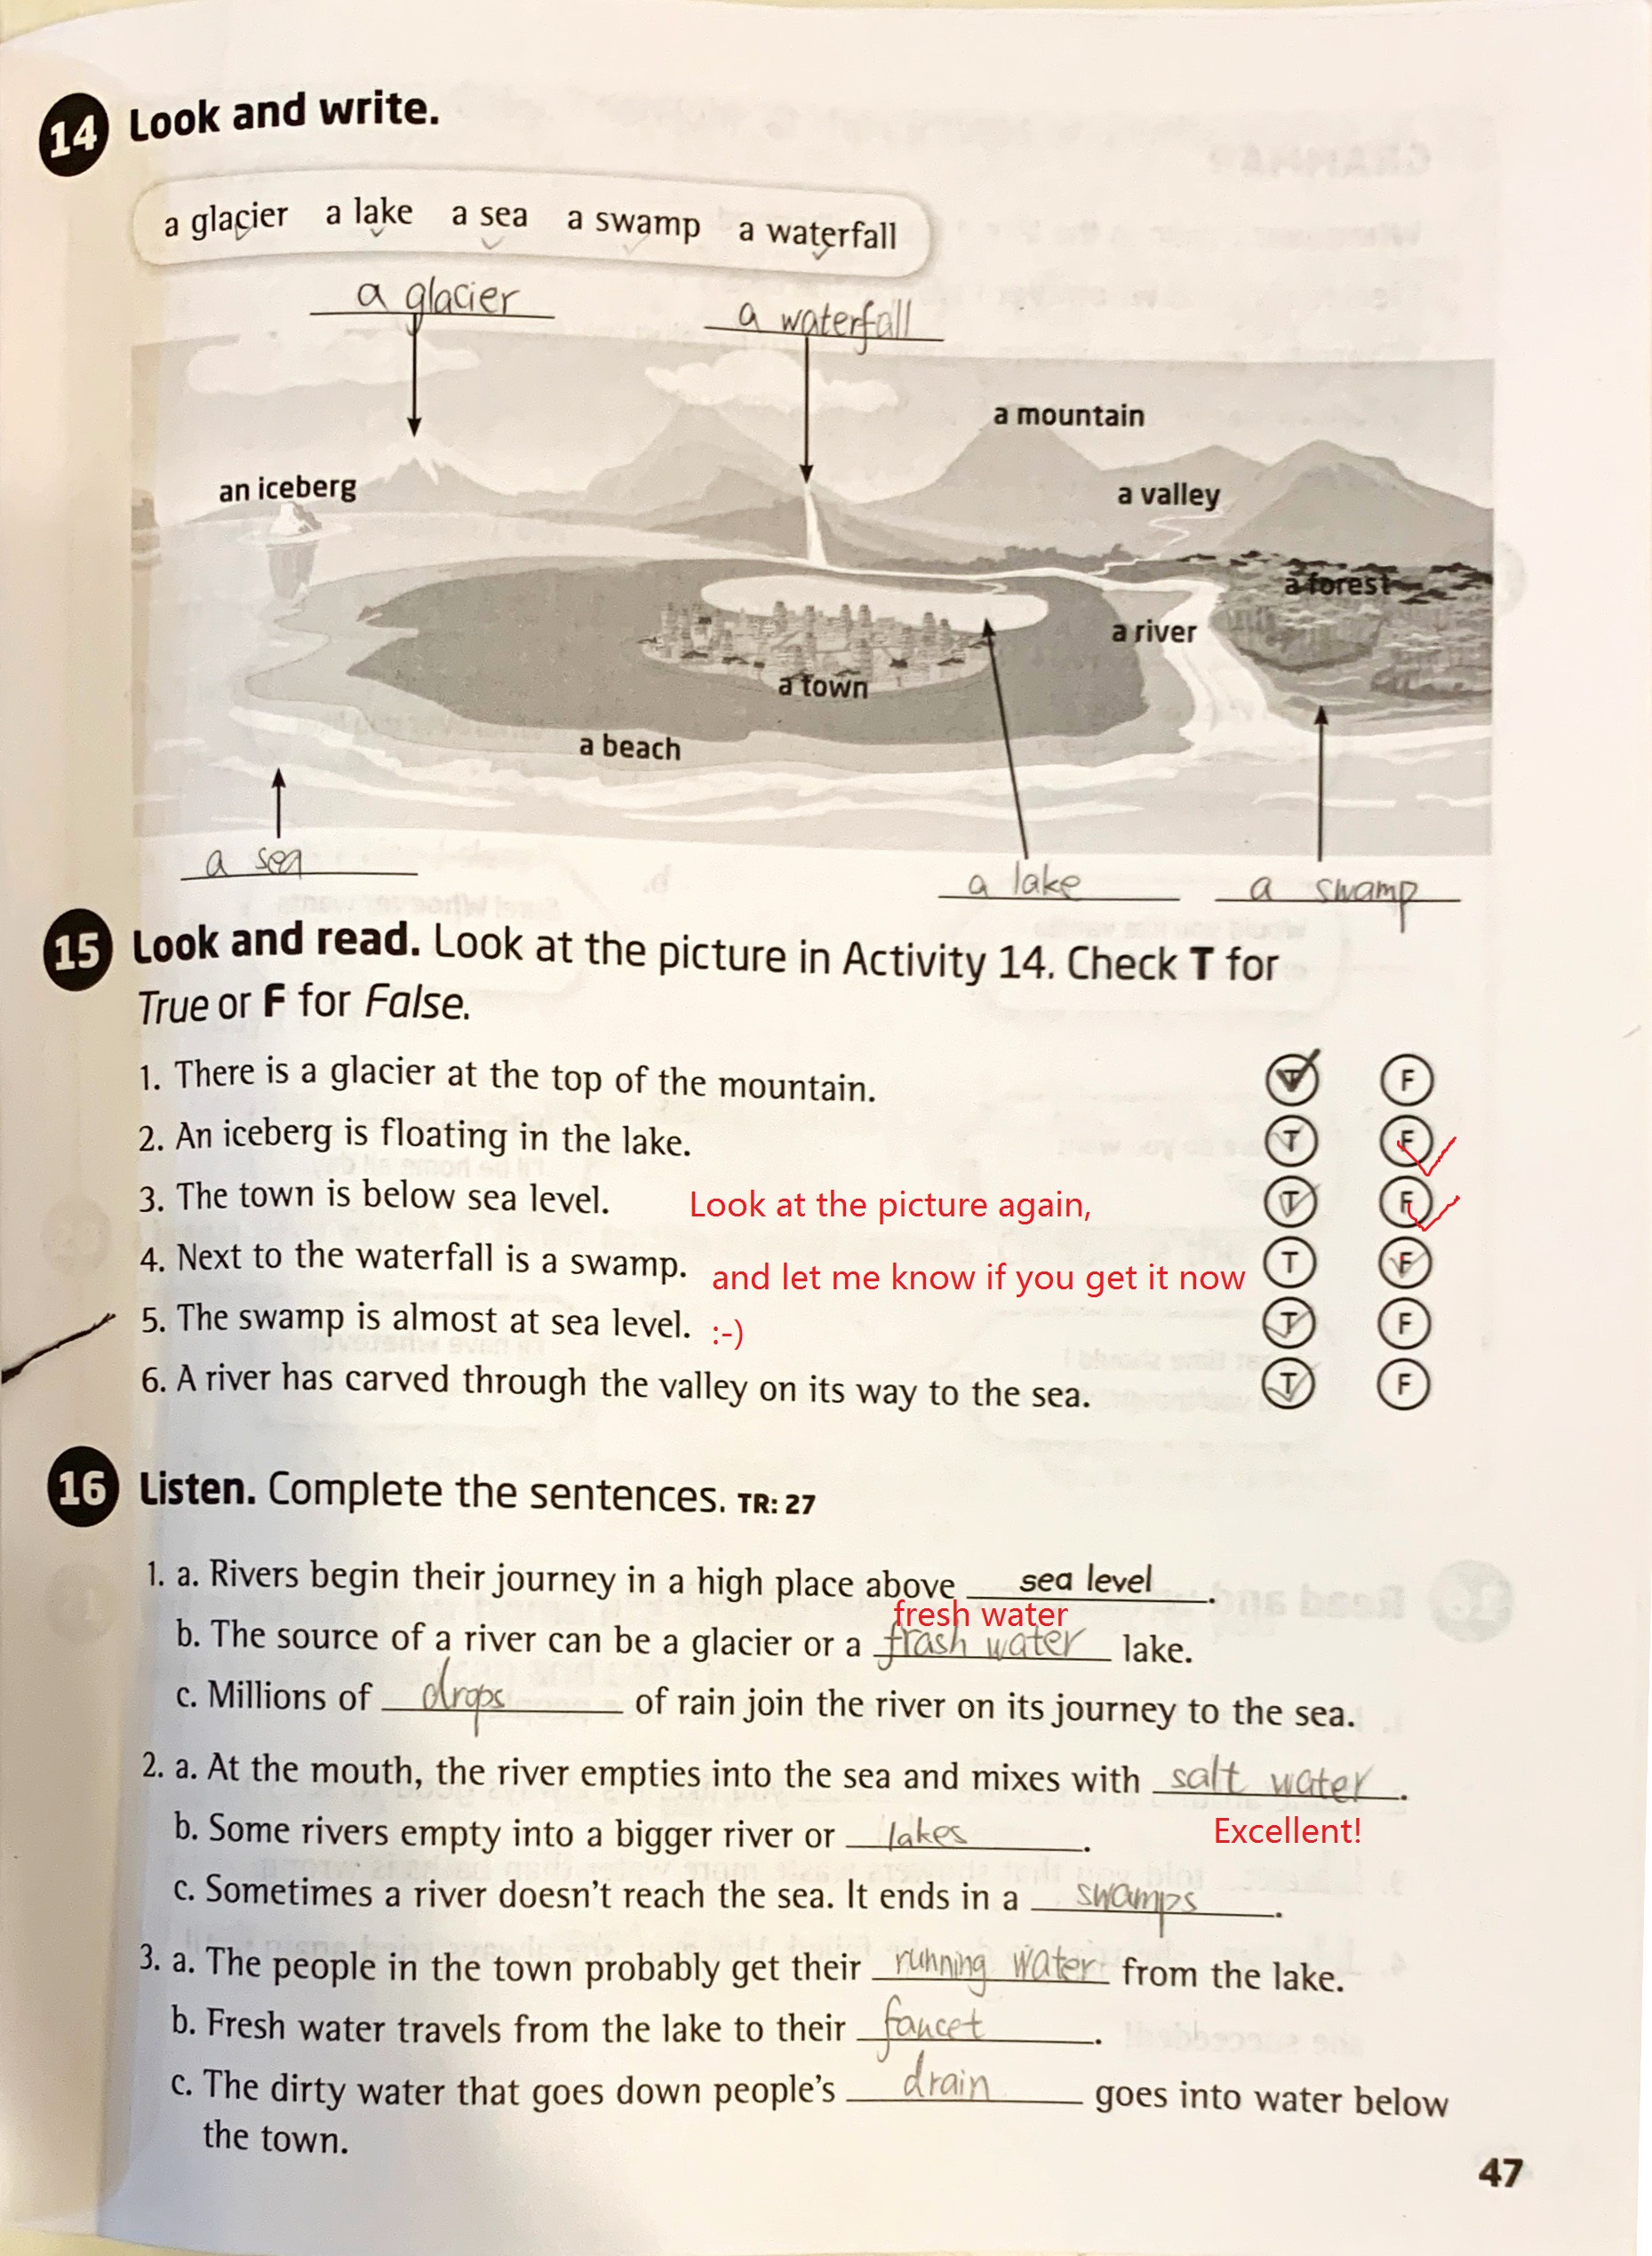 14 Look and write.
a glacier a lake a sea a swamp a waterfall
a glacier
a waterfall
a mountain
an iceberg
a valley
a forest
a river
a town
a beach
a sea
a lake
a swamp
15 Look and read. Look at the picture in Activity 14. Check T for
True or F for False.
1. There is a glacier at the top of the mountain. T F
2. An iceberg is floating in the lake. T F
3. The town is below sea level. Look at the picture again, T F
4. Next to the waterfall is a swamp. and let me know if you get it now T F
5. The swamp is almost at sea level. :-) T F
6. A river has carved through the valley on its way to the sea. T F
16 Listen. Complete the sentences. TR: 27
1. a. Rivers begin their journey in a high place above sea level.
fresh water
b. The source of a river can be a glacier or a frash water lake.
c. Millions of drops of rain join the river on its journey to the sea.
2. a. At the mouth, the river empties into the sea and mixes with salt water.
b. Some rivers empty into a bigger river or lakes.
Excellent!
c. Sometimes a river doesn't reach the sea. It ends in a swamps.
3. a. The people in the town probably get their running water from the lake.
b. Fresh water travels from the lake to their faucet.
c. The dirty water that goes down people's drain goes into water below
the town.
47